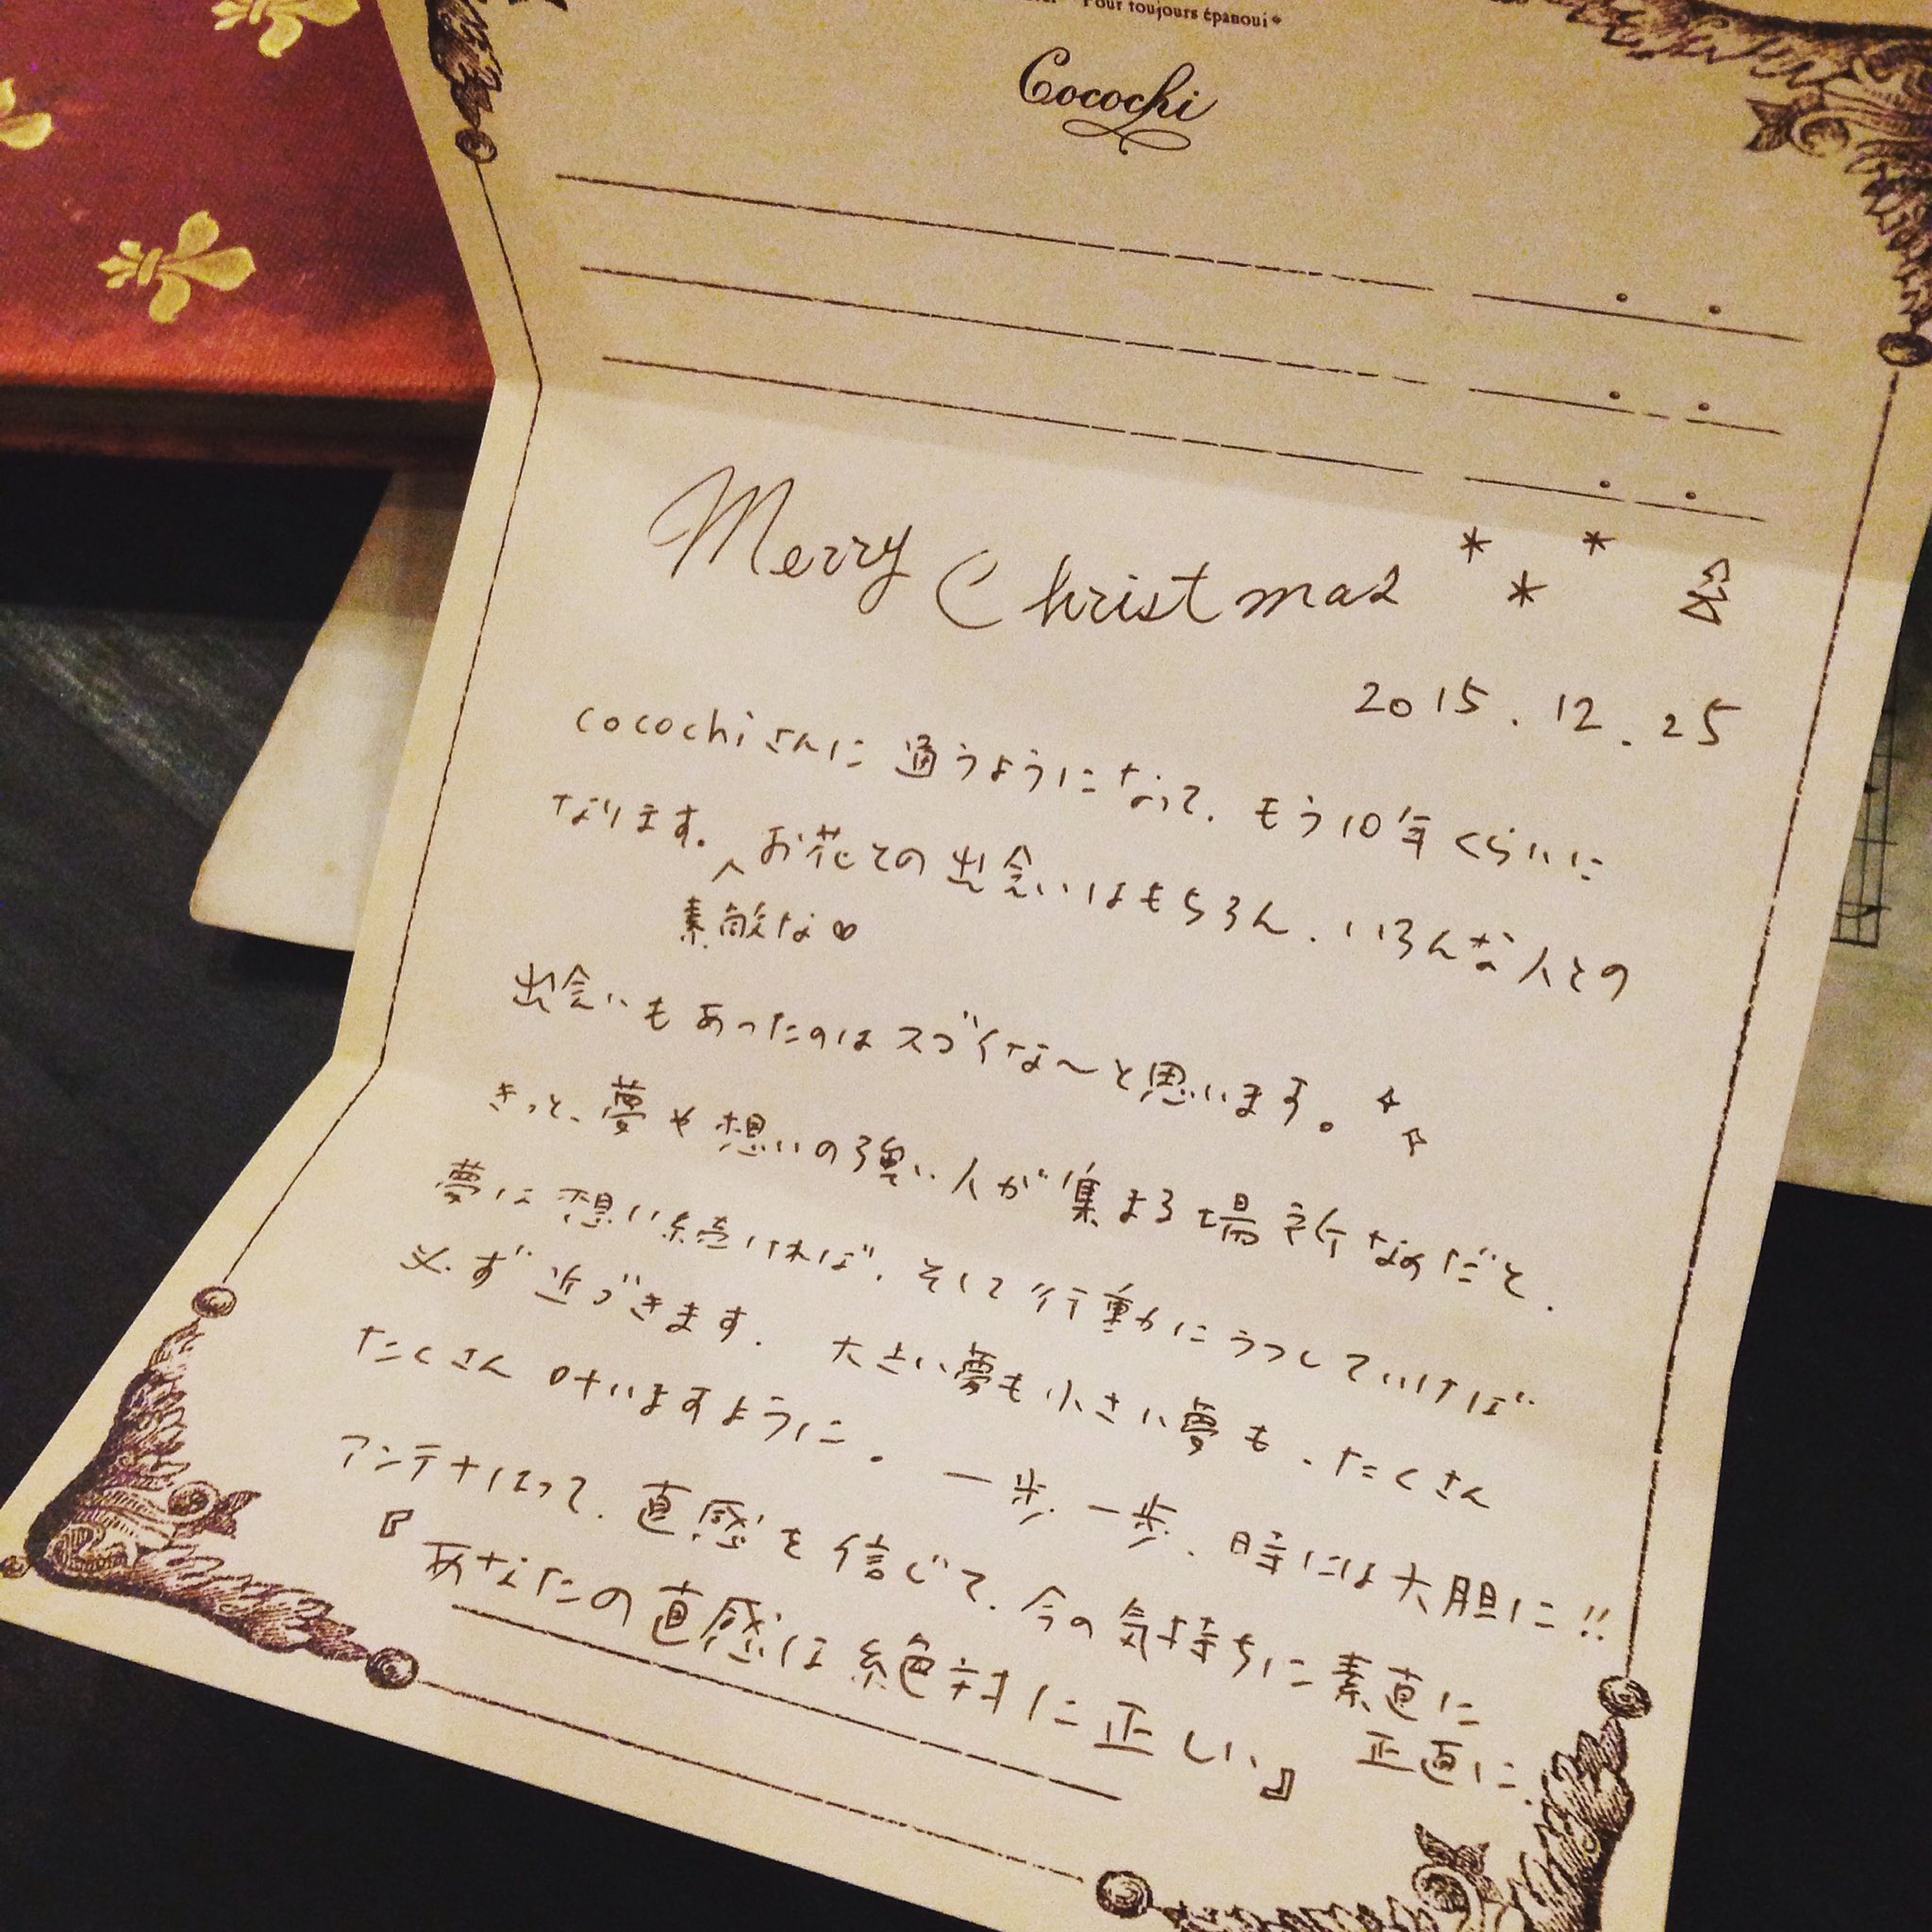 Pour toujours épanoui
Cocochi
Merry Christmas
2015.12.25
cocochiさんに通うようになって、もう10年くらいに
なります。お花との出会いはもちろん、いろんな人との
素敵な♡
出会いもあったのはスゴイな〜と思います。
きっと、夢や想いの強い人が集まる場所なのだと、
夢は想い続ければ、そして行動にうつしていけば
必ず近づきます。大きい夢も小さい夢も、たくさん
たくさん叶いますように。一歩、一歩、時には大胆に!!
アンテナはって、直感を信じて、今の気持ちに素直に
正直に、
『あなたの直感は絶対に正しい』